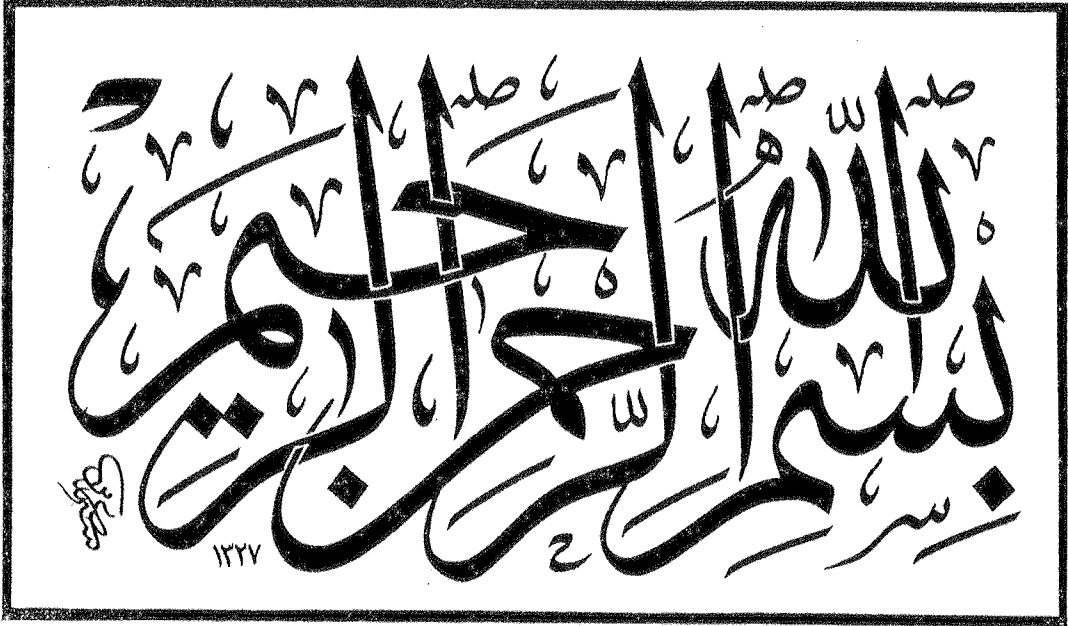 بِسْمِ اللّٰهِ الرَّحْمٰنِ الرَّحِيمِ
١٣٢٧